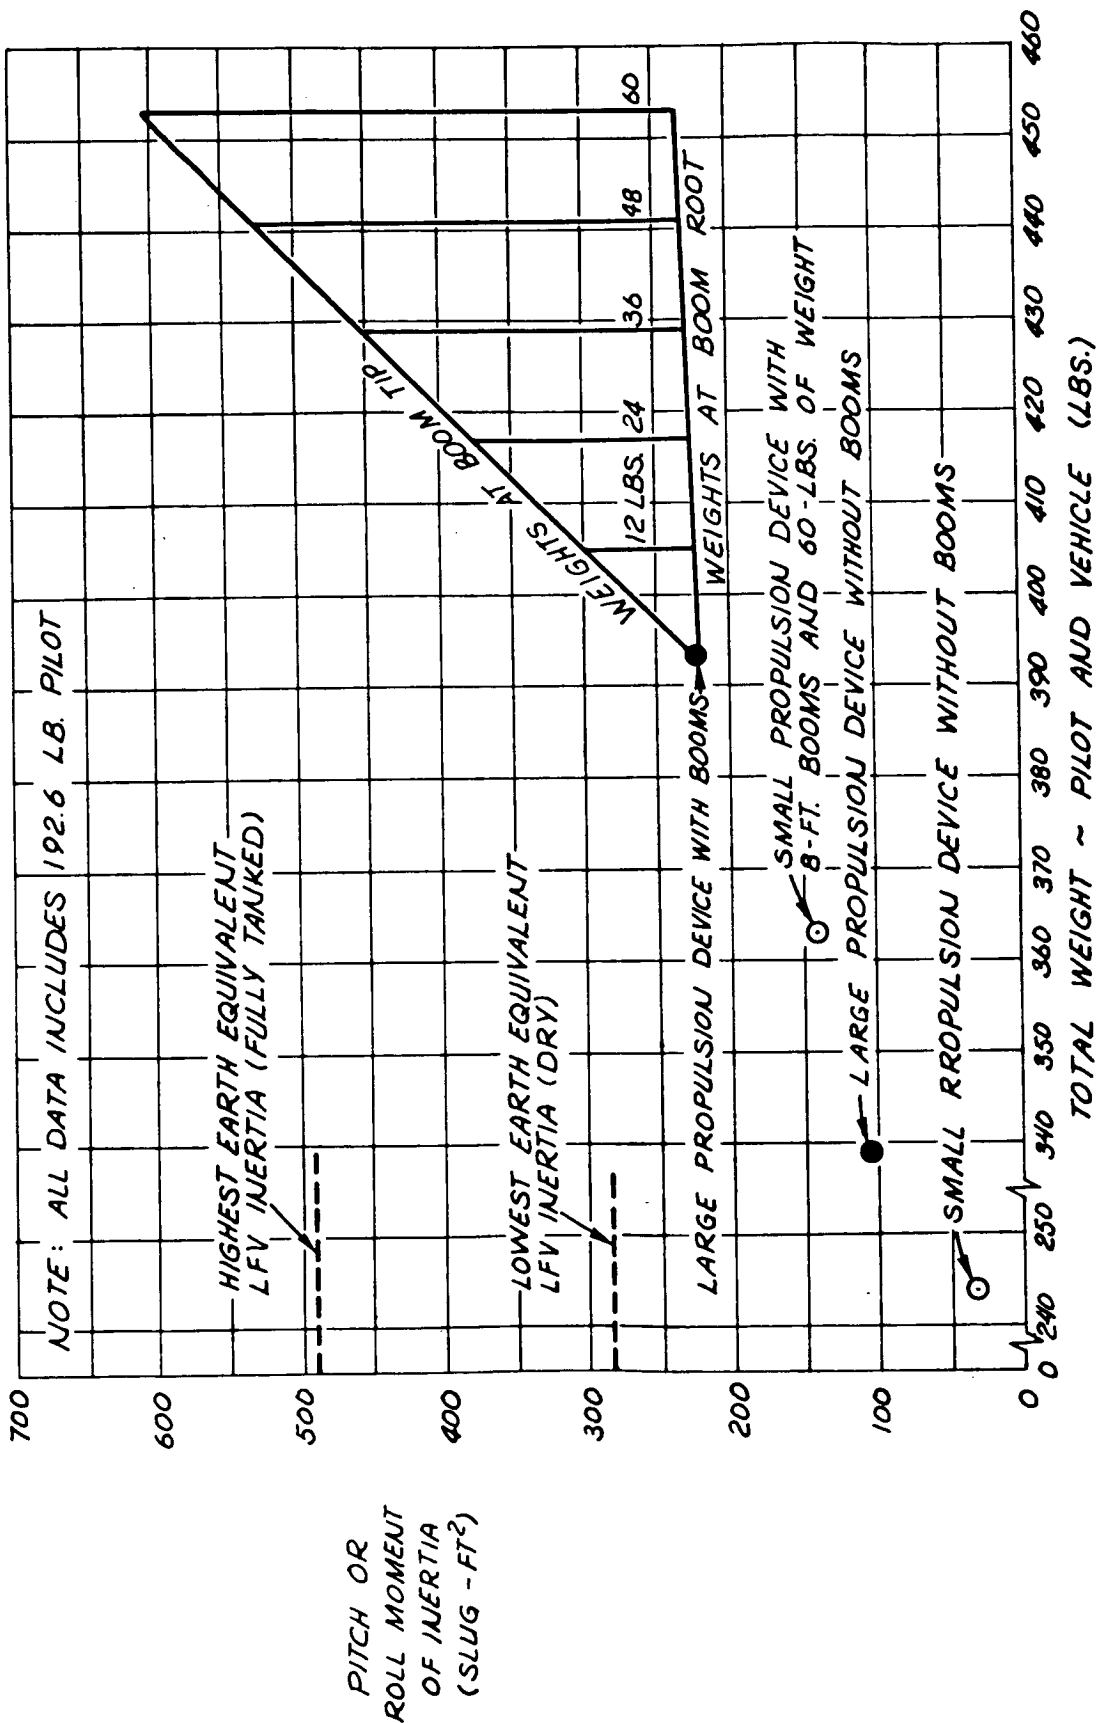 NOTE: ALL DATA INCLUDES 192.6 LB. PILOT
HIGHEST EARTH EQUIVALENT
LFV INERTIA (FULLY TANKED)
LOWEST EARTH EQUIVALENT
LFV INERTIA (DRY)
WEIGHTS AT BOOM TIP
12 LBS.
24
36
48
60
WEIGHTS AT BOOM ROOT
LARGE PROPULSION DEVICE WITH BOOMS
SMALL PROPULSION DEVICE WITH
8-FT. BOOMS AND 60-LBS. OF WEIGHT
LARGE PROPULSION DEVICE WITHOUT BOOMS
SMALL RROPULSION DEVICE WITHOUT BOOMS
700
600
500
400
300
200
100
0
PITCH OR
ROLL MOMENT
OF INERTIA
(SLUG - FT²)
0 240 250 340 350 360 370 380 390 400 410 420 430 440 450 460
TOTAL WEIGHT ~ PILOT AND VEHICLE (LBS.)